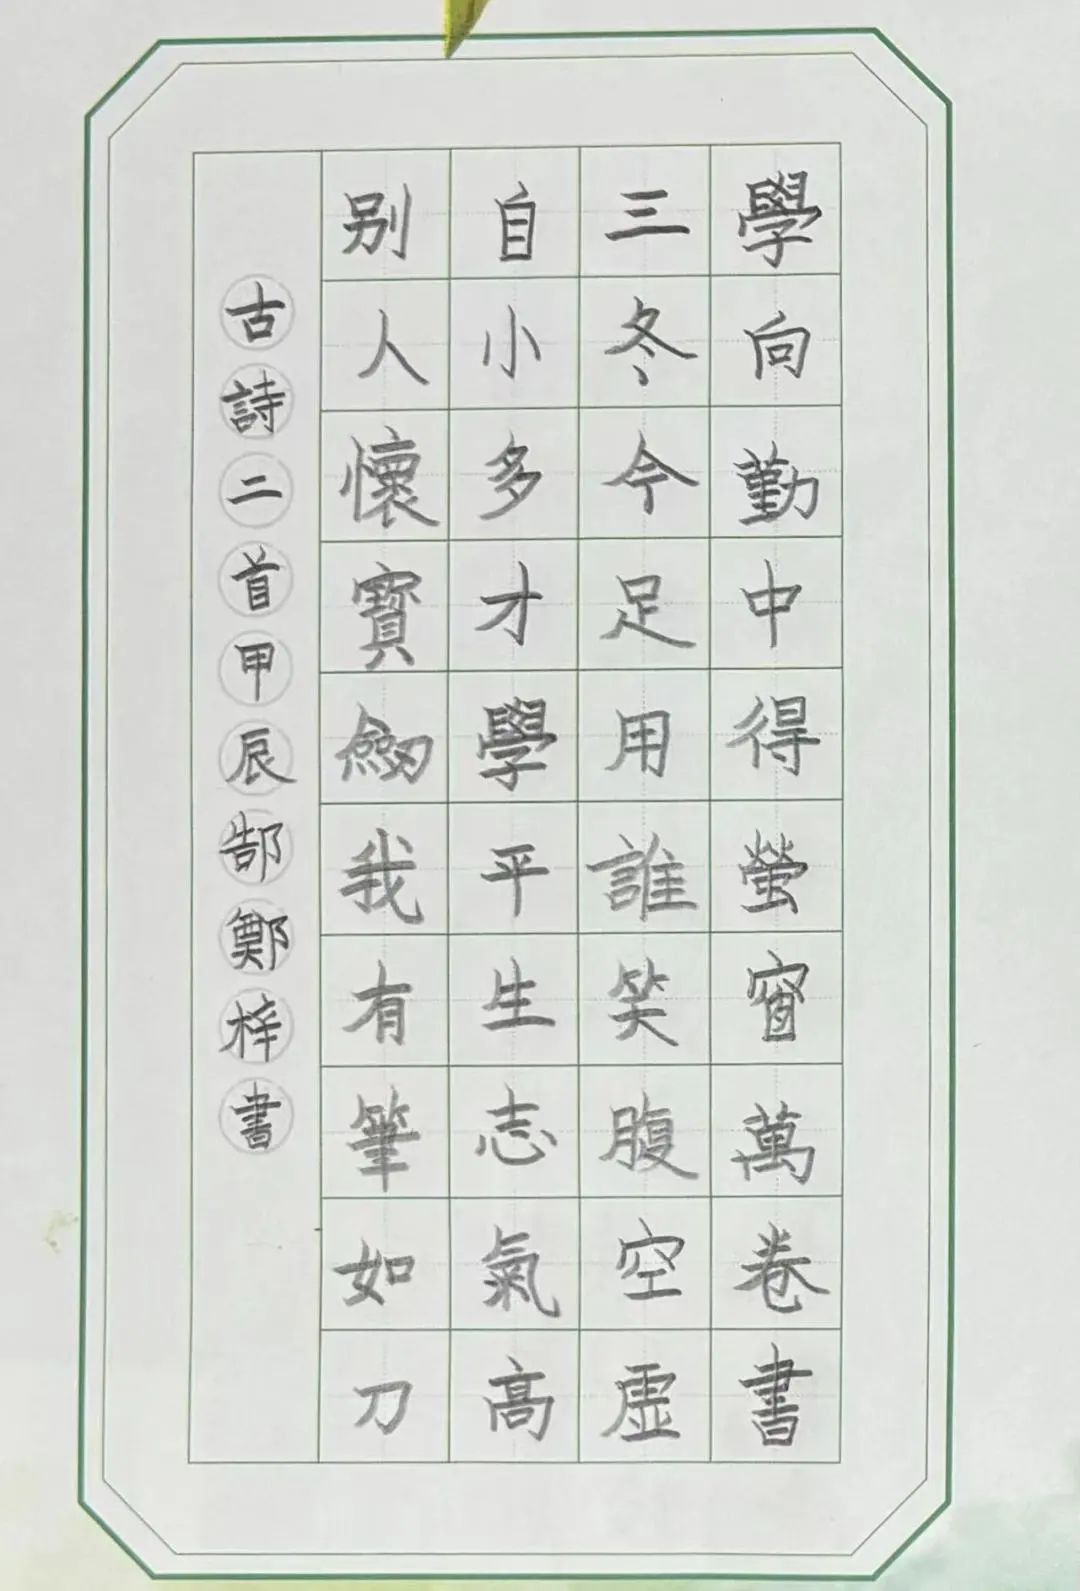 學向勤中得螢窗萬卷書
三冬今足用誰笑腹空虛
自小多才學平生志氣高
别人懷寶劒我有筆如刀
古詩二首甲辰郜鄭梓書